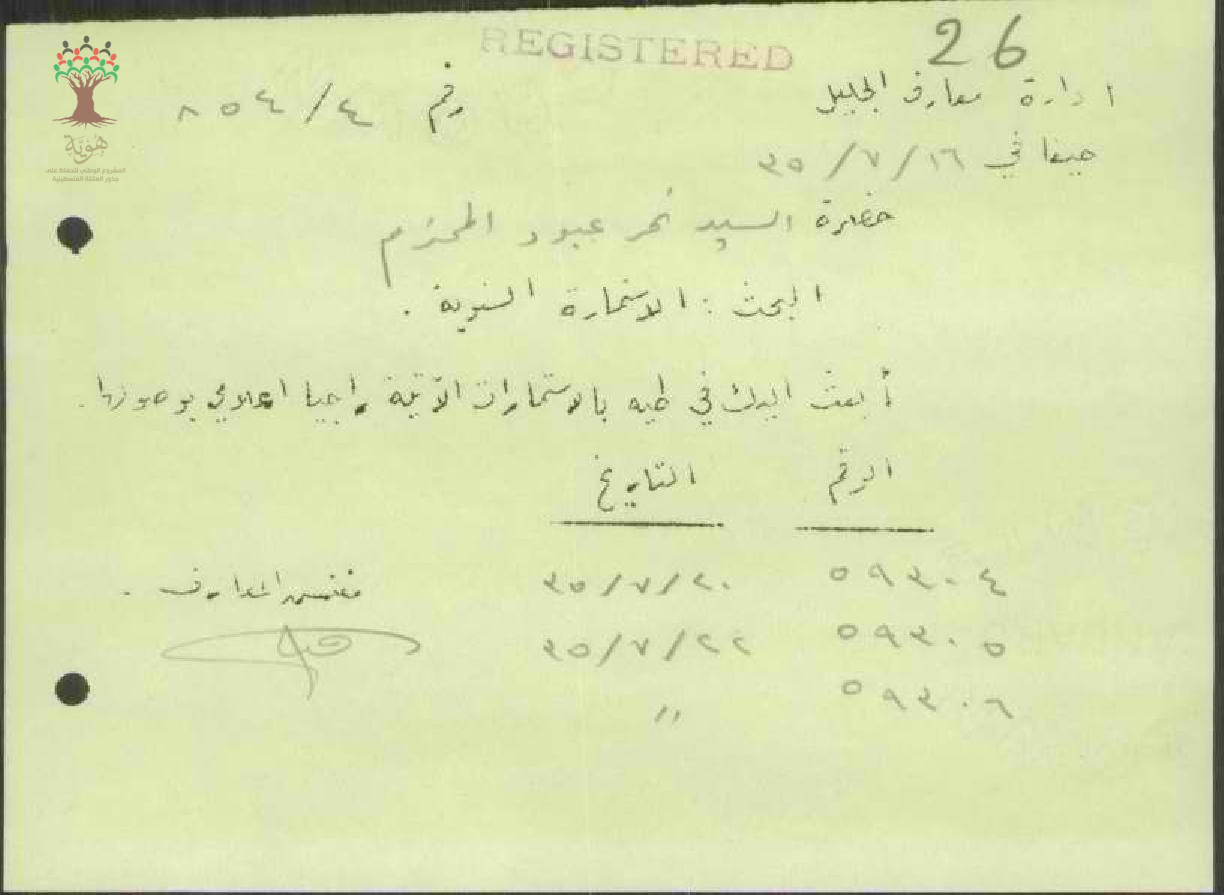 REGISTERED
26
ادارة معارف الجليل
رقم ٨٥٤/٤
حيفا في ١٦/٧/٣٥
هُوِيَّة
المشروع الوطني للحفاظ على
جذور العائلة الفلسطينية
حضرة السيد نمر عبود المحترم
البحث : الاستمارة السنوية .
أبعث اليك في طيه بالاستمارات الآتية راجيا اعلامي بوصولها .
الرقم التاريخ
٥٩٣٠٤ ٣٥/٧/٢٠
مفتش المعارف .
٥٩٣٠٥ ٣٥/٧/٢٢
٥٩٣٠٦ "